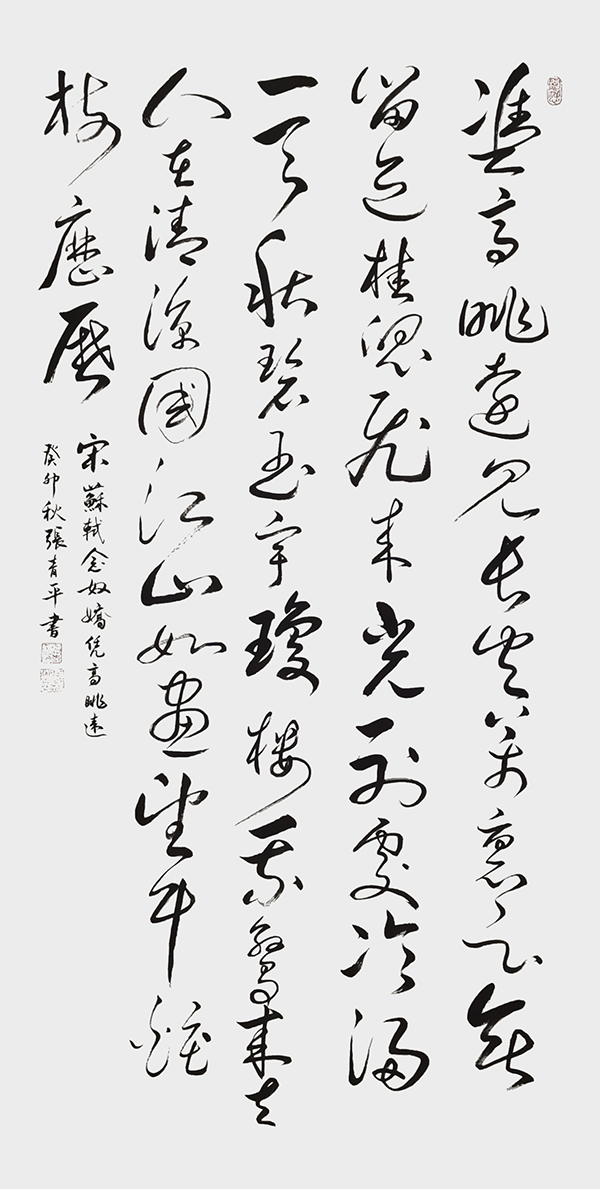 憑高眺遠見長空萬里雲無
留迹桂魄飛來光射處冷浸
一天秋碧玉宇瓊樓乘鸞來去
人在清涼國江山如畫望中煙
樹歷歷
宋蘇軾念奴嬌凭高眺遠
癸卯秋張青平書